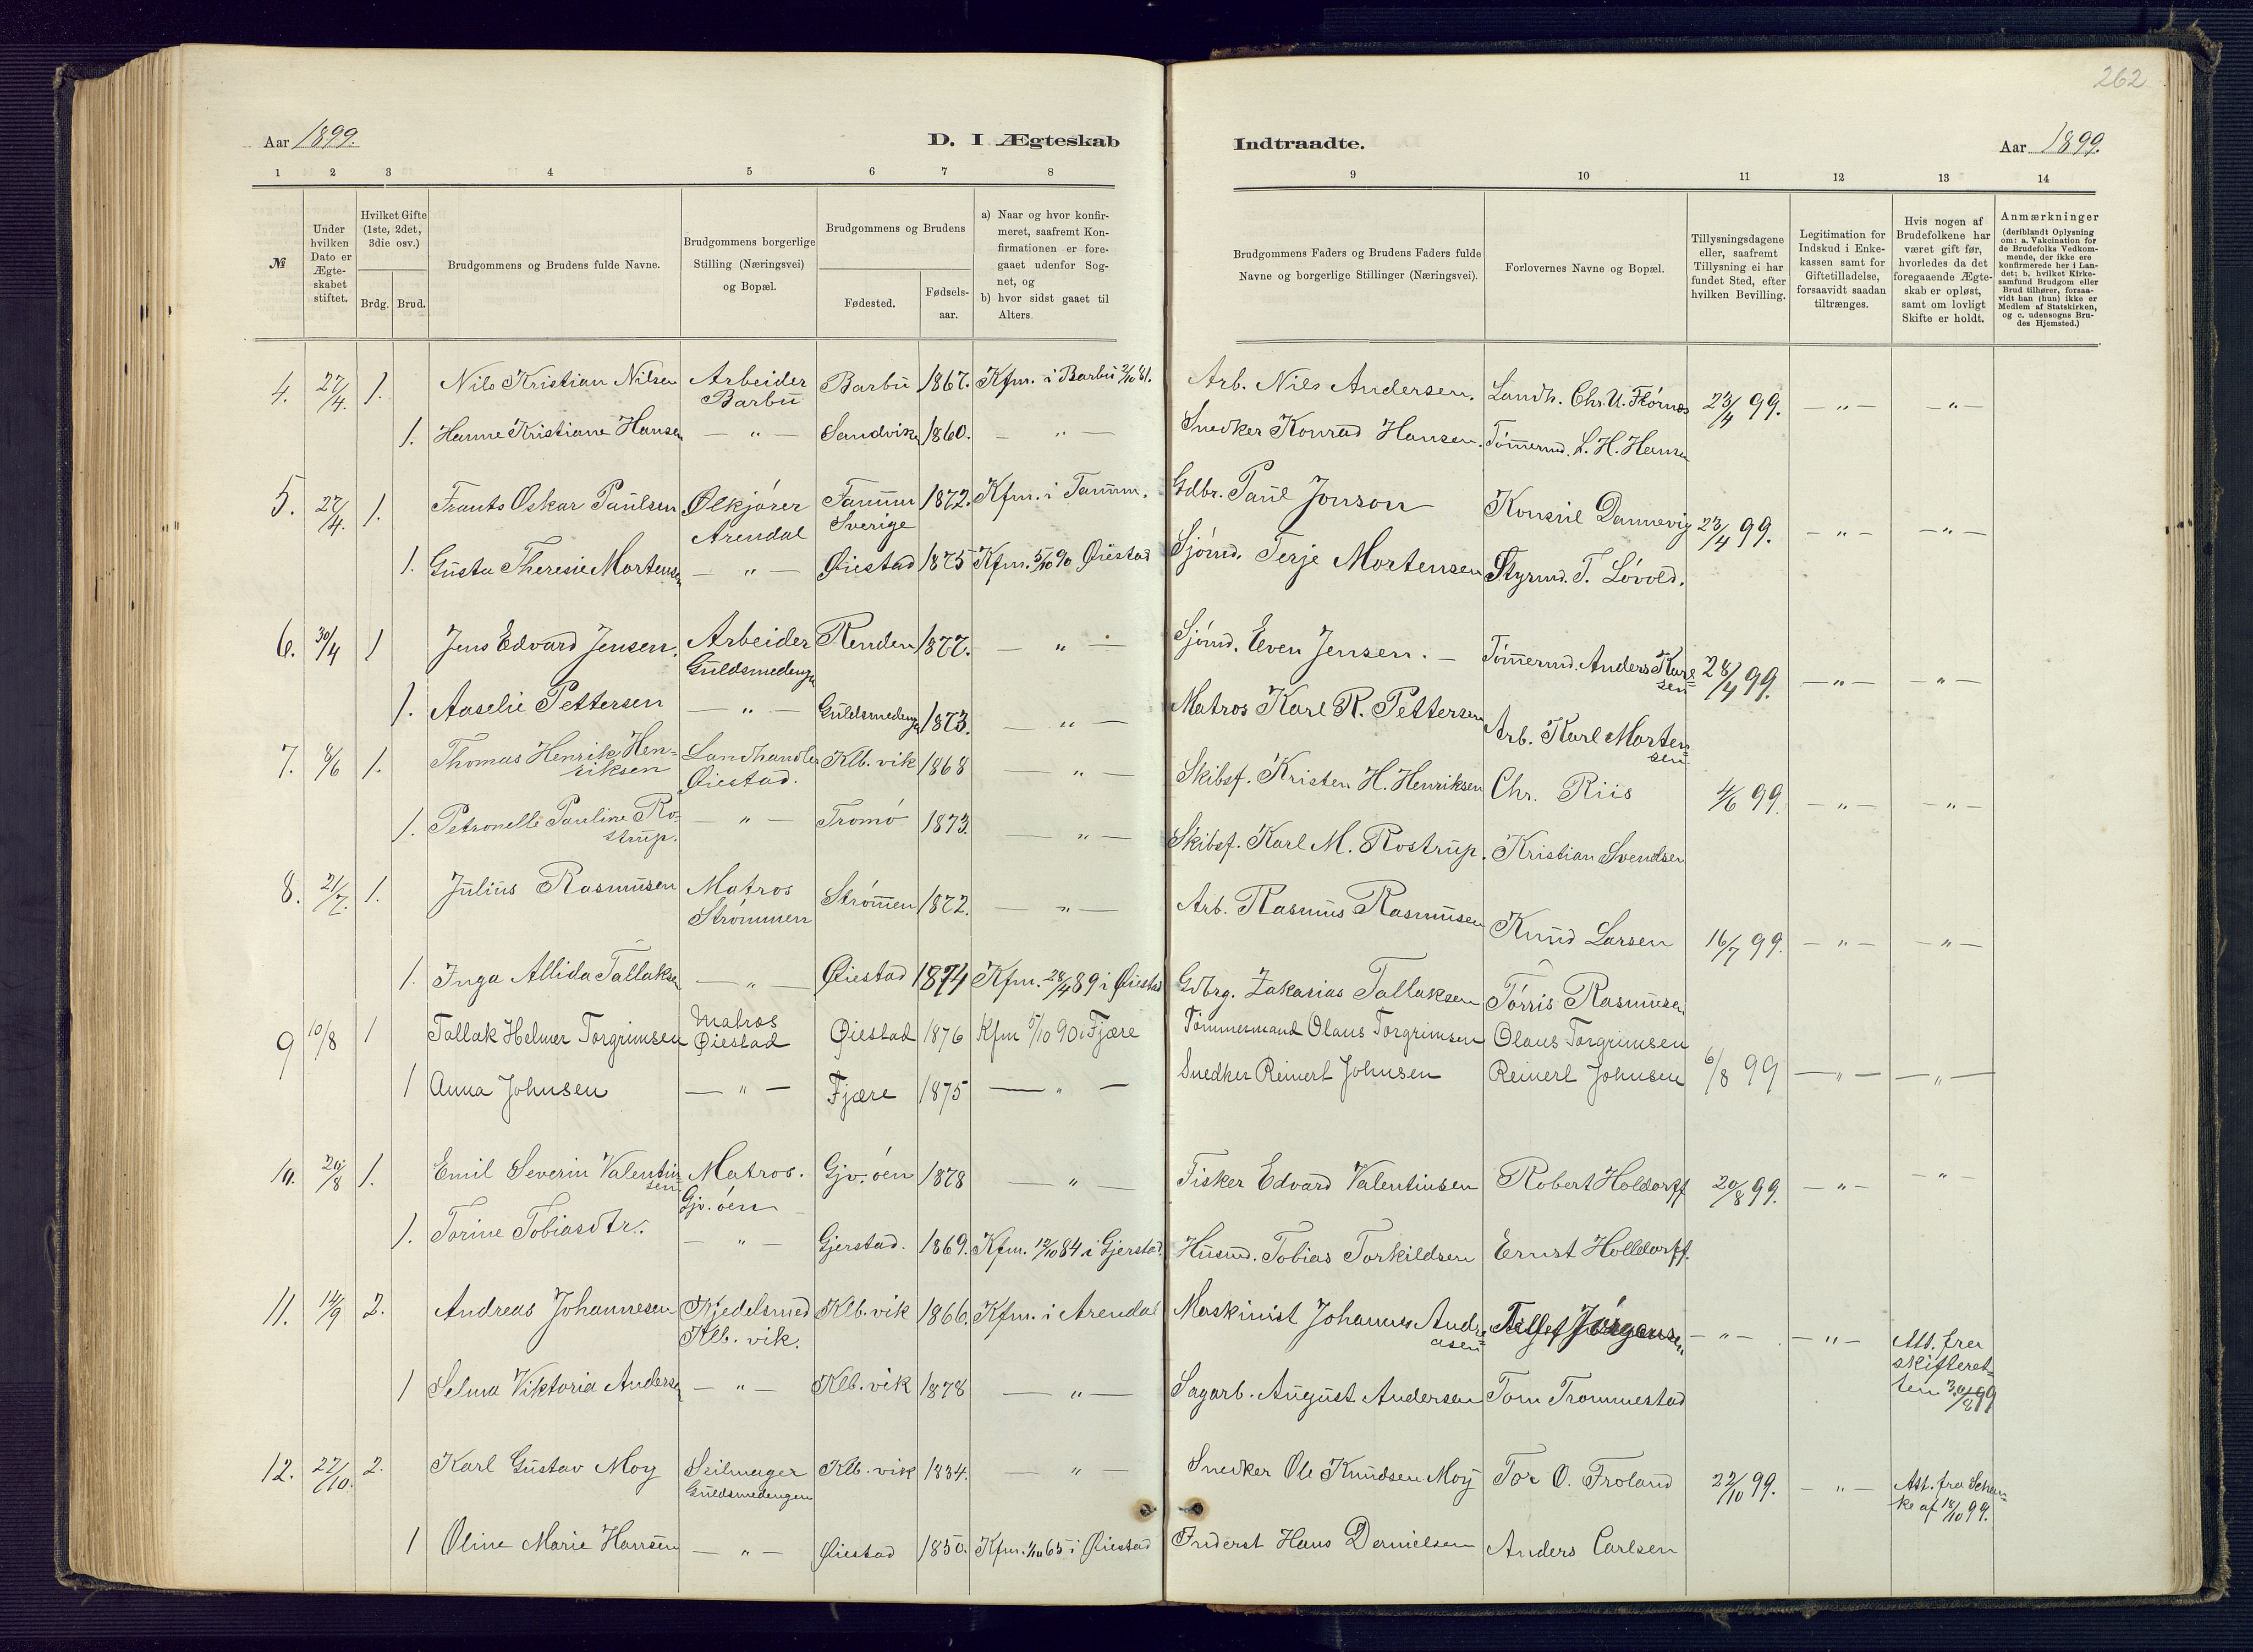 262
Aar 1899.
D. I Ægteskab
Indtraadte.
Aar 1899.
1 2 3 4 5 6 7 8
9 10 11 12 13 14
№
Under hvilken Dato er Ægte-skabet stiftet.
Hvilket Gifte (1ste, 2det, 3die osv.)
Brdg. Brud.
Brudgommens og Brudens fulde Navne.
Brudgommens borgerlige Stilling (Næringsvei) og Bopæl.
Brudgommens og Brudens
Fødested.
Fødsels-aar.
a) Naar og hvor konfir-meret, saafremt Kon-firmationen er fore-gaaet udenfor Sog-net, og
b) hvor sidst gaaet til Alters.
Brudgommens Faders og Brudens Faders fulde Navne og borgerlige Stillinger (Næringsvei).
Forlovernes Navne og Bopæl.
Tillysningsdagene eller, saafremt Tillysning ei har fundet Sted, efter hvilken Bevilling.
Legitimation for Indskud i Enke-kassen samt for Giftetilladelse, forsaavidt saadan tiltrænges.
Hvis nogen af Brudefolkene har været gift før, hvorledes da det foregaaende Ægte-skab er opløst, samt om lovligt Skifte er holdt.
Anmærkninger (deriblandt Oplysning om: a. Vakcination for de Brudefolks Vedkom-mende, der ikke ere konfirmerede her i Lan-det; b. hvilket Kirke-samfund Brudgom eller Brud tilhører, forsaa-vidt han (hun) ikke er Medlem af Statskirken, og c. udensogns Bru-des Hjemsted.)
4. 27/4. 1. Nils Kristian Nilsen Arbeider Barbu Barbu 1867. Kfm. i Barbu 2/10 81. Arb. Nils Andersen. Landh. Chr. U. Flórnæs 23/4 99. — " — — " —
1. Hanne Kristiane Hansen — " — Sandvika 1860. — " — Snedker Konrad Hansen. Tømmermd. L. H. Hansen
5. 27/4. 1. Frants Oskar Paulsen Ølkjører Arendal Tanum Sverige 1872. Kfm. i Tanum. Gdbr. Paul Jonson Konsul Dannevig 23/4 99. — " — — " —
1. Gusta Theresie Mortensen — " — Øiestad 1875 Kfm. 5/10 90 Øiestad Sjømd. Terje Mortensen Styrmd. T. Løvold.
6. 30/4 1 Jens Edvard Jensen. Arbeider Guldsmedenga Renden 1877. — " — Sjømd. Even Jensen. — Tømmermd. Anders Karlsen 28/4 99. — " — — " —
1. Aaselie Pettersen — " — Guldsmedenga 1873. — " — Matros Karl R. Pettersen Arb. Karl Mortensen
7. 8/6 1. Thomas Henrik Henriksen Landhandler Øiestad. Klb. vik 1868 — " — Skibsf. Kristen H. Henriksen Chr. Riis 4/6 99. — " — — " —
1. Petronelle Pauline Rostrup. — " — Tromø 1873. — " — Skibsf. Karl M. Rostrup. Kristian Svendsen
8. 21/7. 1. Julius Rasmusen Matros Strømmen Strømmen 1872. — " — Arb. Rasmus Rasmusen Knud Larsen 16/7 99. — " — — " —
1. Inga Allida Tallaksen — " — Øiestad 1874 Kfm. 28/4 89 i Øiestad Gdbrg. Zakarias Tallaksen Tørris Rasmusen
9 10/8 1 Tallak Helmer Torgrimsen Matros Øiestad Øiestad 1876 Kfm 5/10 90 i Fjære Tømmermand Olaus Torgrimsen Olaus Torgrimsen 6/8 99 — " — — " —
1 Anna Johnsen — " — Fjære 1875 — " — Snedker Reinert Johnsen Reinert Johnsen
10. 20/8 1. Emil Severin Valentinsen Matros. Gjv. øen Gjv. øen 1878 — " — Fisker Edvard Valentinsen Robert Holdorff 20/8 99. — " — — " —
1. Torine Tobiasdtr. — " — Gjerstad. 1869. Kfm. 12/10 84 i Gjerstad. Husmd. Tobias Torkildsen Ernst Holldorff.
11. 14/9 2. Andreas Johannesen Kjedelsmed Klb. vik. Klb. vik 1866. Kfm. i Arendal Maskinist Johannes Andreasen Jørgensen — " — — " — Att. fra skifteretten 30/8 99
1 Selma Viktoria Andersen — " — Klb. vik 1878 — " — Sagarb. August Andersen Tom Trommestad
12. 27/10. 2. Karl Gustav Moy Seilmager Guldsmedengen Klb. vik 1834. — " — Snedker Ole Knudsen Moy Tor O. Froland 22/10 99. — " — Att. fra Schenke af 18/10 99.
1 Oline Marie Hansen — " — Øiestad 1850. Kfm. 1/10 65 i Øiestad Inderst Hans Danielsen Anders Carlsen